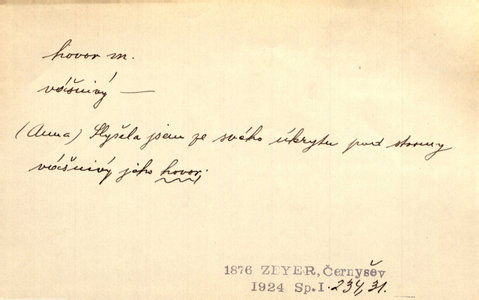 hovor m.
vášnivý —
(Anna) Slyšela jsem ze svého úkrytu pod stromy
vášnivý jeho hovor.
1876 ZEYER, Černyšev
1924 Sp.I. 234,31.